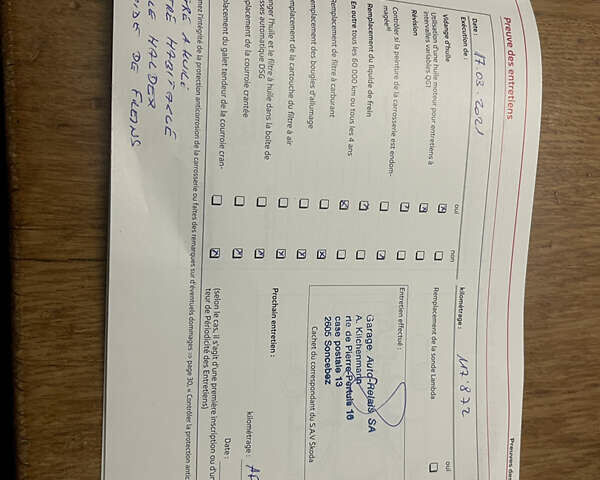 Preuve des entretiens
Preuves des
Date :
17.03.2021
kilométrage :
Exécution de :
oui
non
oui
Vidange d'huile
Remplacement de la sonde Lambda
Utilisation d'une huile moteur pour entretiens à
intervalles variables QG1
Révision
Entretien effectué :
Contrôler si la peinture de la carrosserie est endom-
magée
Remplacement du liquide de frein
En outre tous les 60 000 km ou tous les 4 ans
Remplacement de filtre à carburant
emplacement des bougies d'allumage
emplacement de la cartouche du filtre à air
anger l'huile et le filtre à huile dans la boîte de
sses automatique DSG
placement de la courroie crantée
placement du galet tendeur de la courroie cran-
Garage Auto-Relais SA
A. Kilchenmann
rte de Pierre-Pertuis 16
case postale 13
2605 Sonceboz
Cachet du correspondant du S.A.V Škoda
Prochain entretien :
kilométrage :
Date :
(selon le cas, il s'agit d'une première inscription ou d'un
teur de Périodicité des Entretiens)
mez l'intégrité de la protection anticorrosion de la carrosserie ou faites des remarques sur d'éventuels dommages ⇒ page 30, « Contrôler la protection antic
HABITACLE
HALDER
DE FREINS